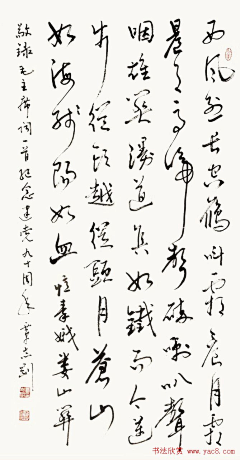 西风烈长空鴈叫霜晨月霜
晨月马蹄聲碎喇叭聲
咽雄关漫道真如鐵而今迈
步從头越從頭越蒼山
如海残阳如血 忆秦娥娄山关
敬録毛主席词一首纪念建党九十周年 覃志刚
书法欣赏 www.yac8.com